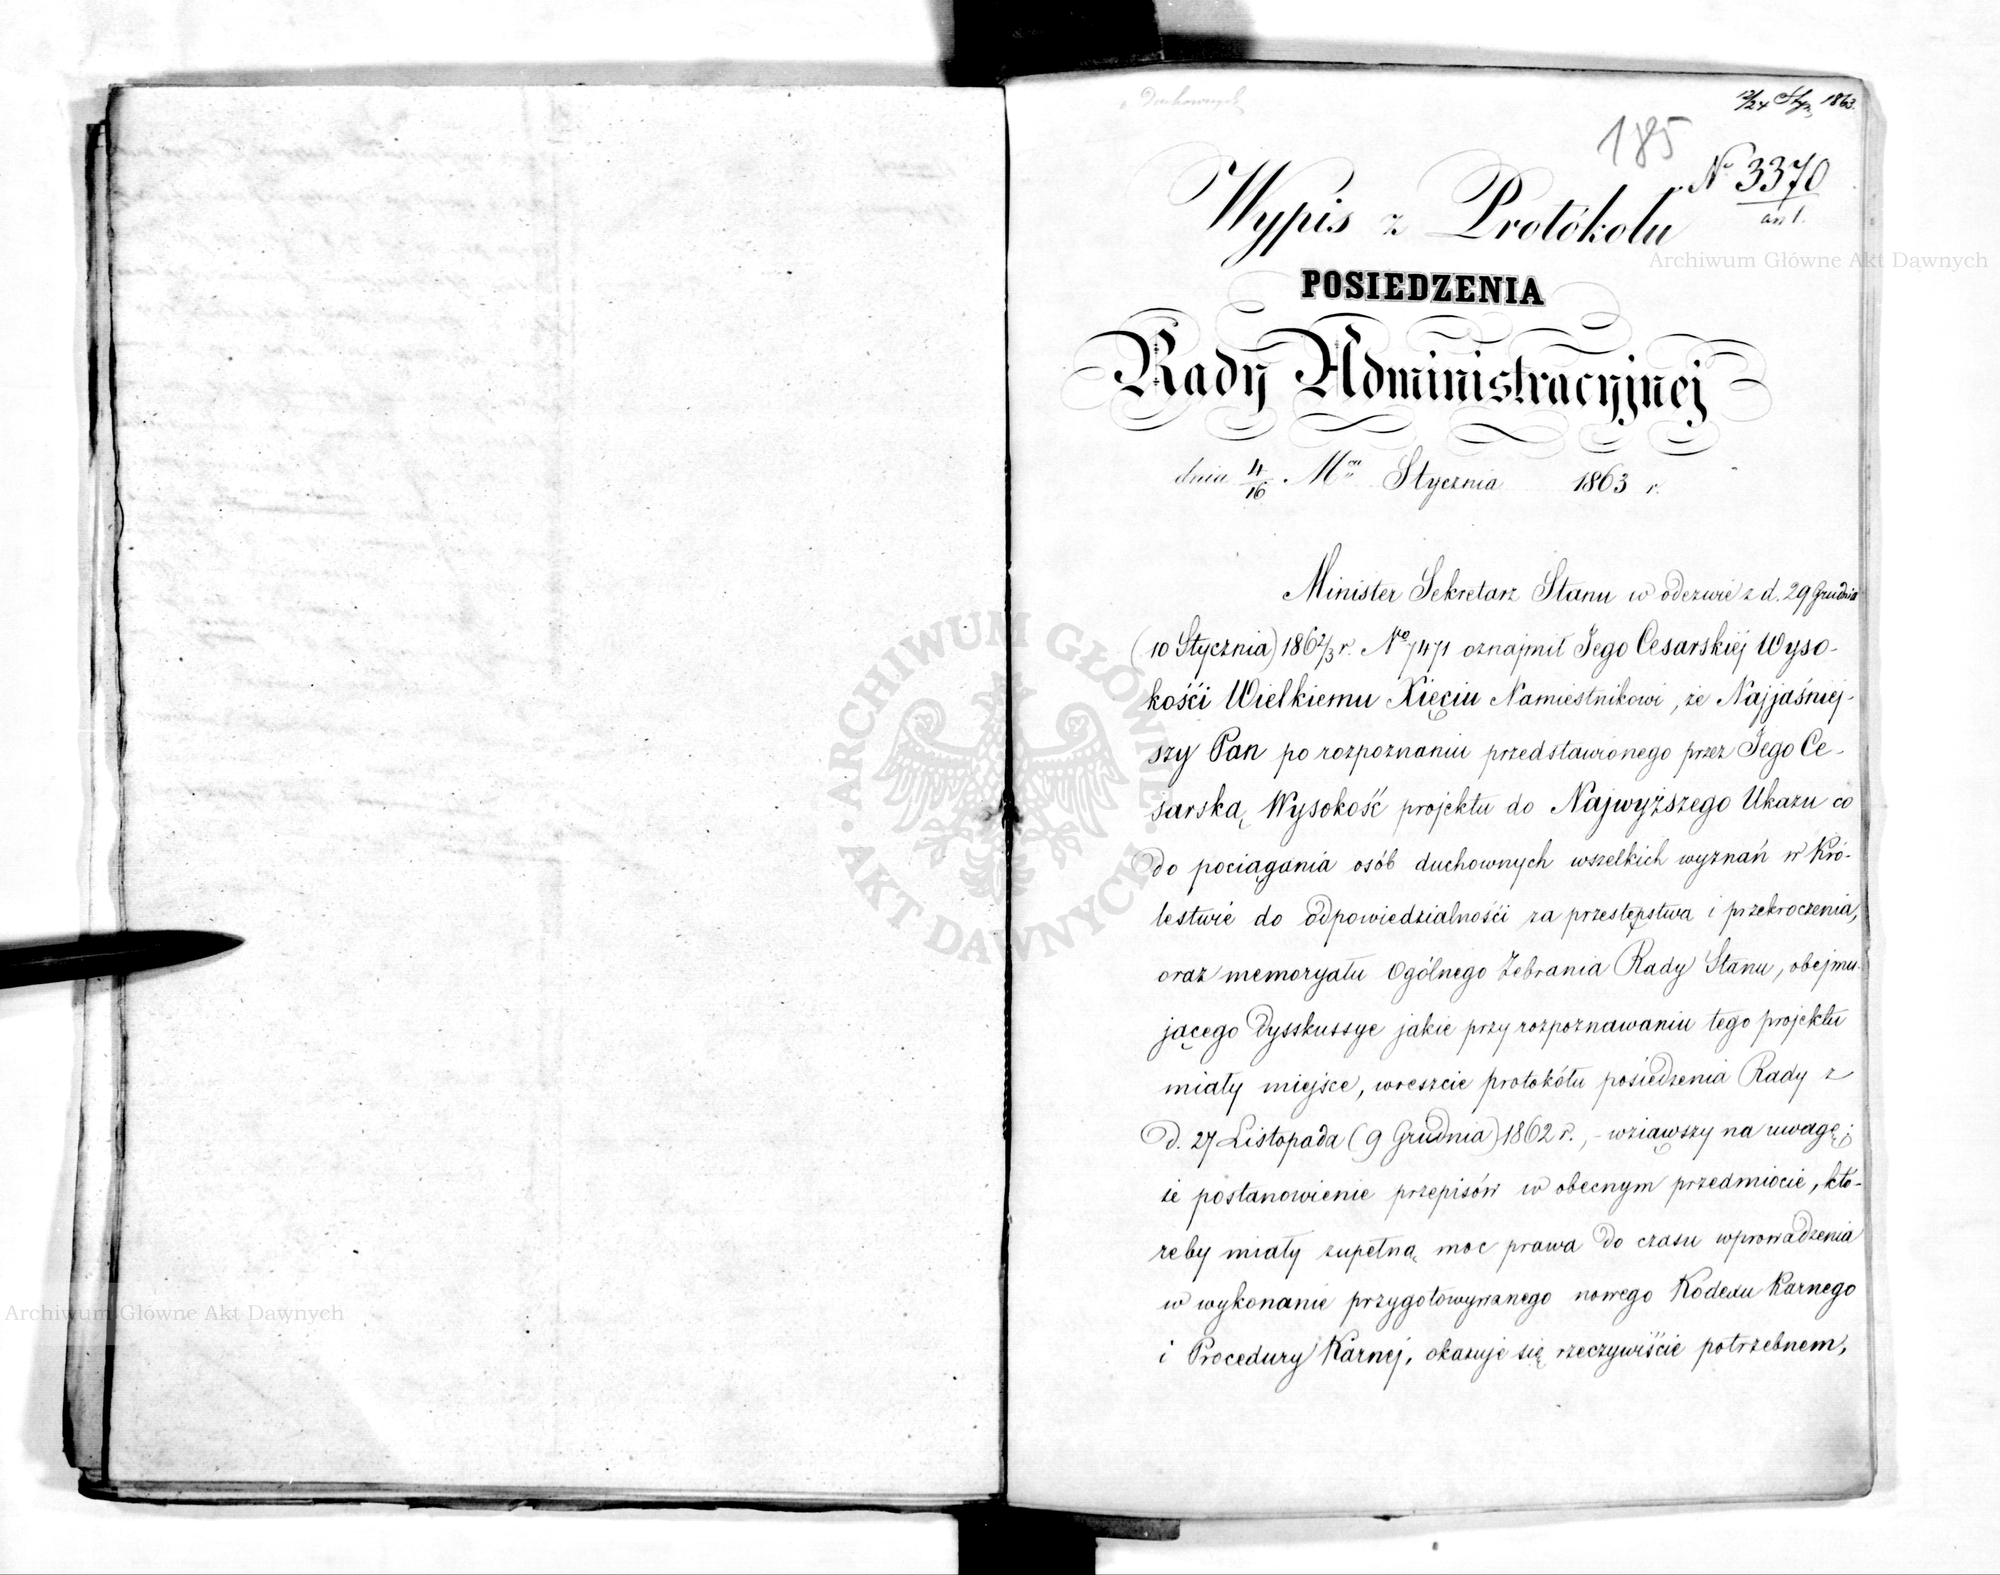 Duchownych
12/24 Sty. 1863.
185
Nr 3370
ant.
Wypis z Protókołu
POSIEDZENIA
Rady Administracyjnej
dnia 4/16 Mca Stycznia 1863 r.
Minister Sekretarz Stanu w odezwie z d. 29 Grudnia
(10 Stycznia) 1862/3 r. No 7471 oznajmił Jego Cesarskiéj Wyso-
kości Wielkiemu Xięciu Namiestnikowi, że Najjaśniej-
szy Pan po rozpoznaniu przedstawionego przez Jego Ce-
sarską Wysokość projektu do Najwyższego Ukazu co
do pociągania osób duchownych wszelkich wyznań w Kró-
lestwie do odpowiedzialności za przestępstwa i przekroczenia,
oraz memoryału Ogólnego Zebrania Rady Stanu, obejmu-
jącego Dysskussye jakie przy rozpoznawaniu tego projektu
miały miejsce, wreszcie protokółu posiedzenia Rady z
d. 27 Listopada (9 Grudnia) 1862 r., - wziąwszy na uwagę;
że postanowienie przepisów w obecnym przedmiocie, któ-
reby miały zupełną moc prawa do czasu wprowadzenia
w wykonanie przygotowywanego nowego Kodexu Karnego
i Procedury Karnej, okazuje się rzeczywiście potrzebnem,
Archiwum Główne Akt Dawnych
ARCHIWUM GŁÓWNE
AKT DAWNYCH
Archiwum Główne Akt Dawnych